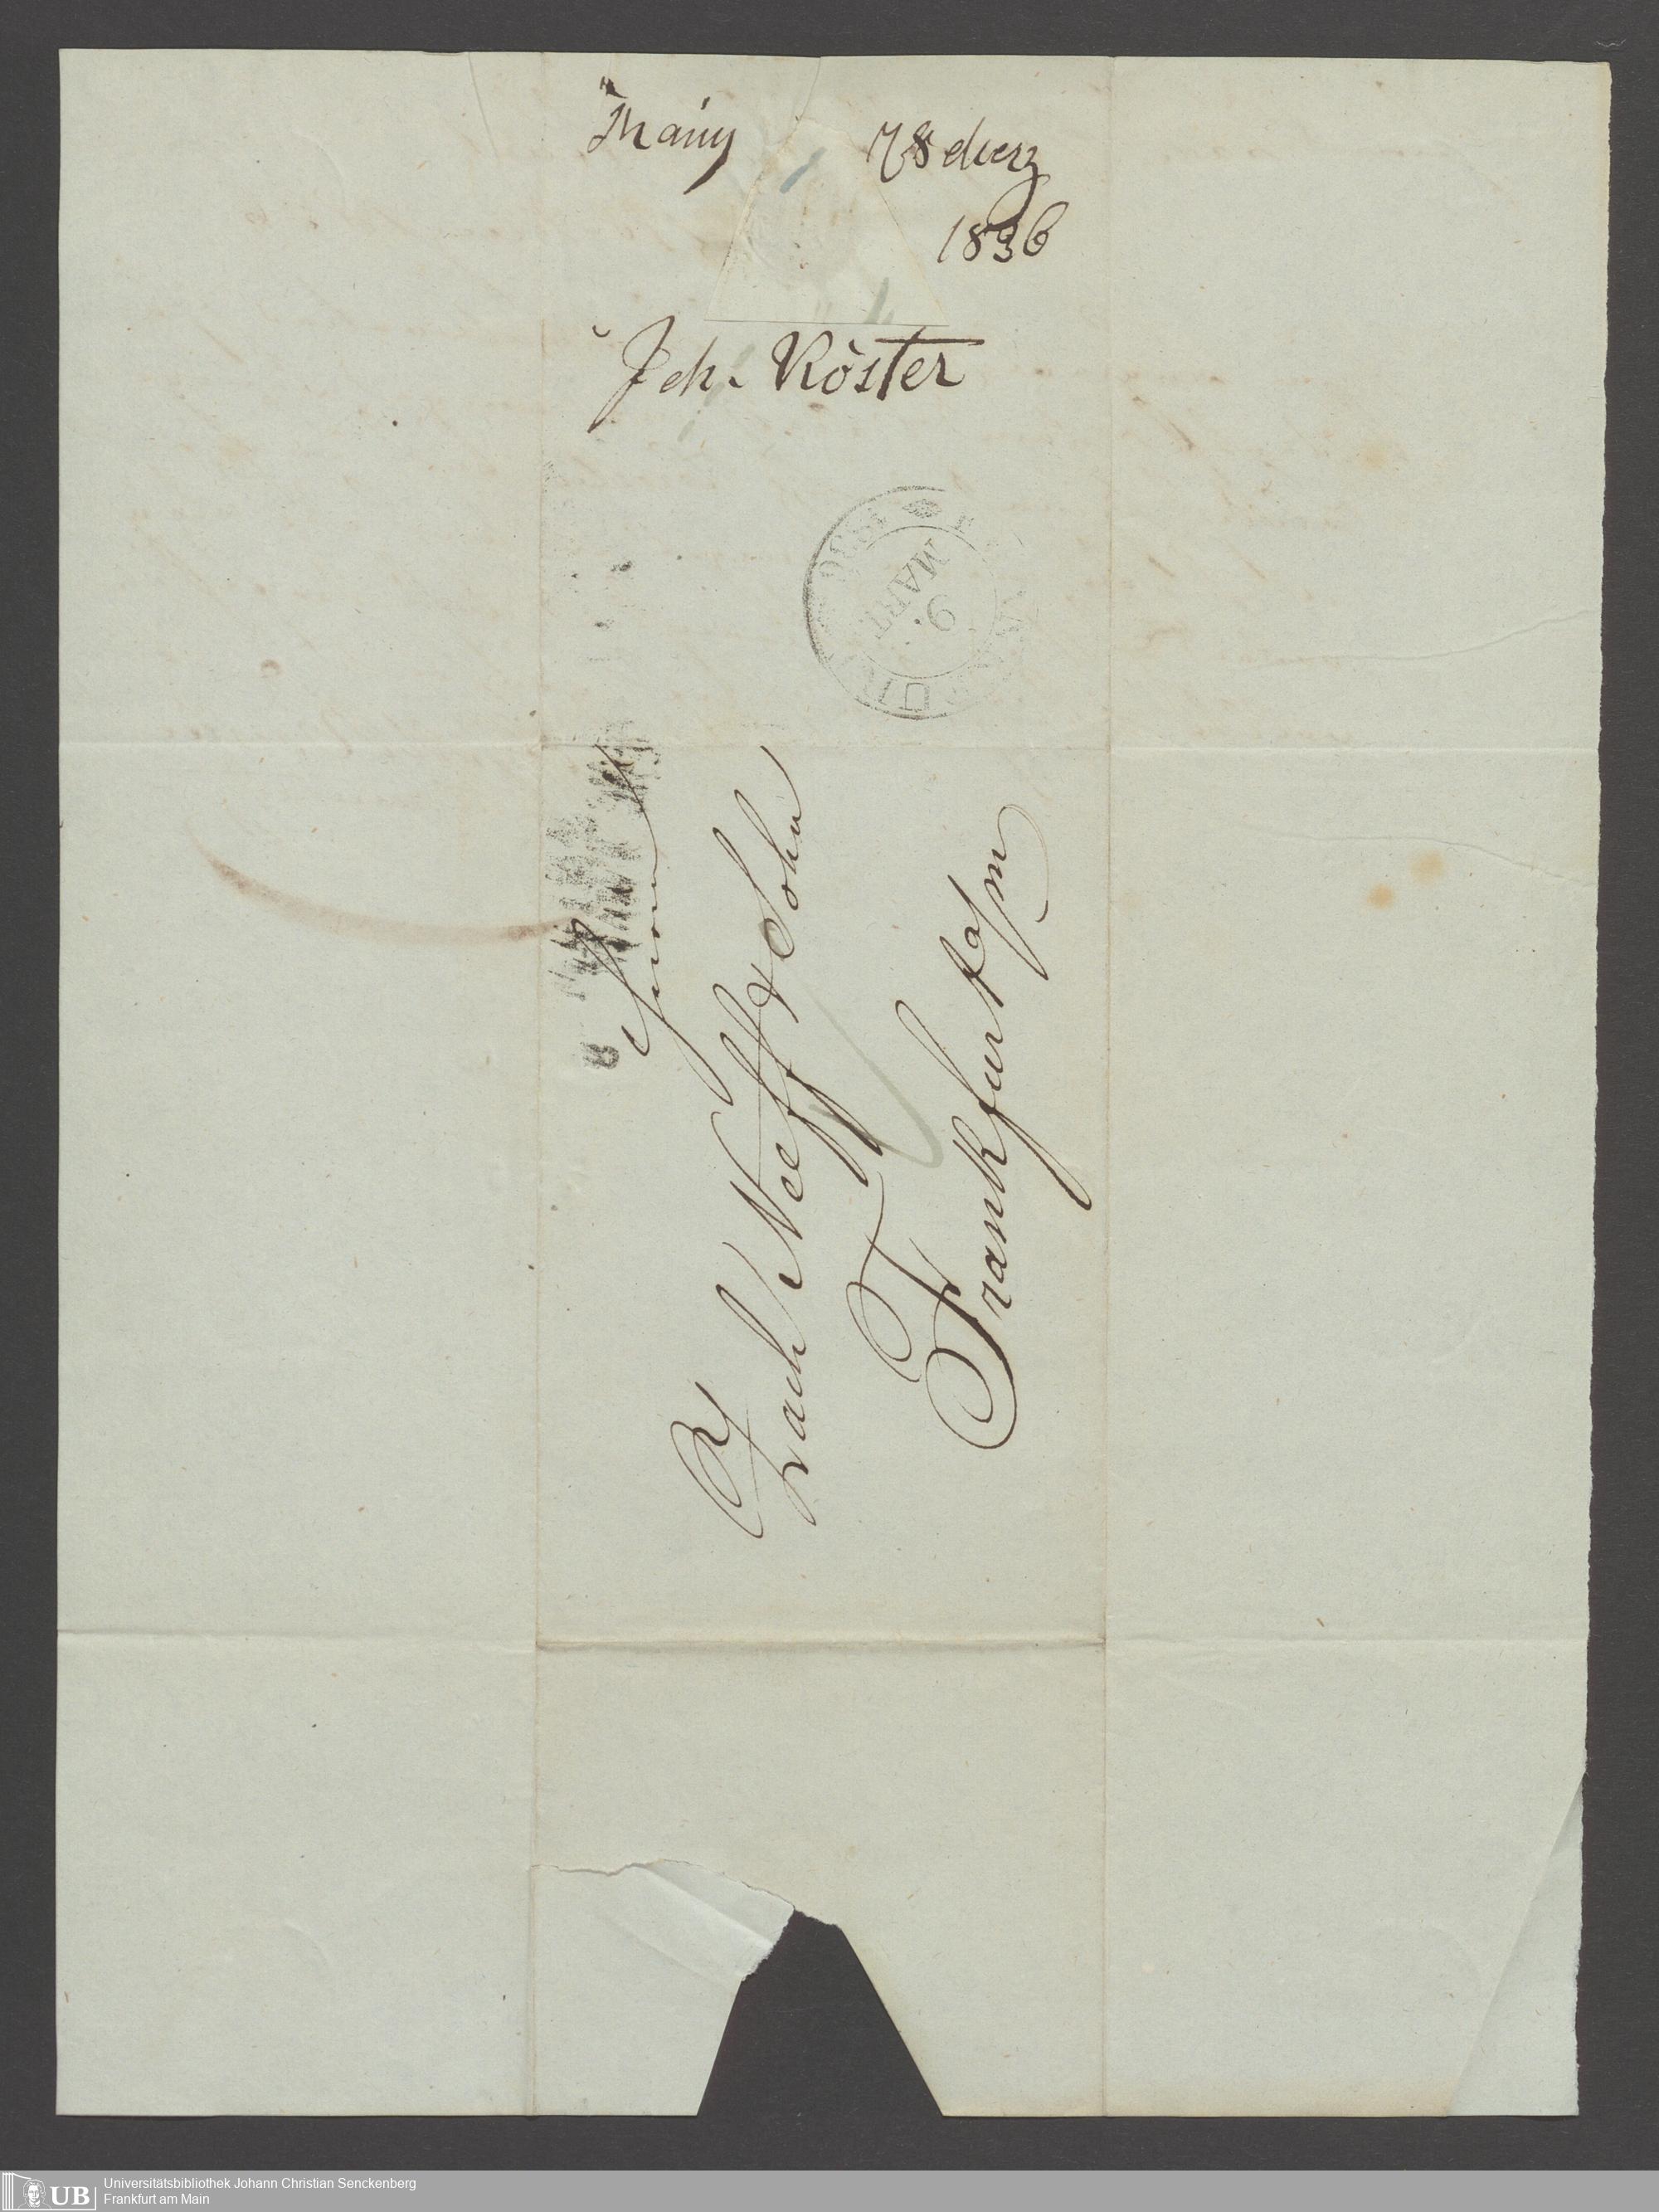 Mainz
März
1836
Joh. Röster
9.
MÄRZ
Herren
Zach. Neeff & Sohn
Frankfurt a/m
UB
Universitätsbibliothek Johann Christian Senckenberg
Frankfurt am Main